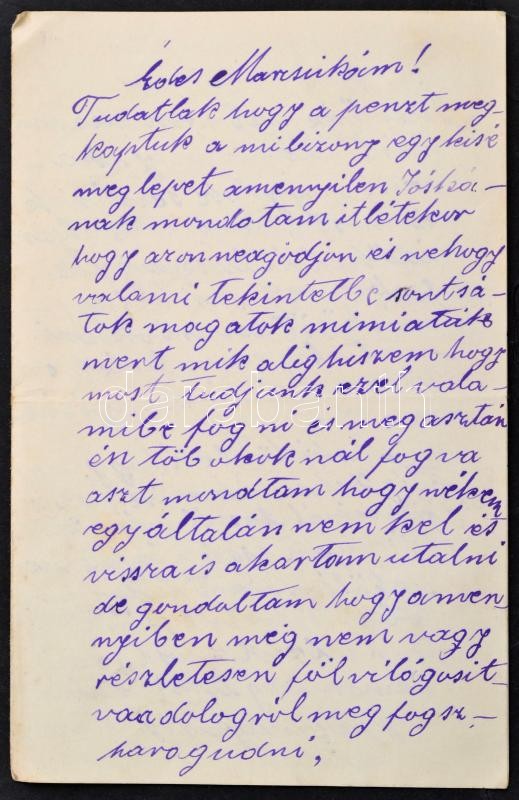 Édes Mariskám!
Tudatlak hogy a penzt meg-
kaptuk a mi bizony egy kisé
meglepet amenyilen Jóská-
nak mondotam itlétekor
hogy azon neagódjon és nehogy
valami tekintetbe rontsá-
tok magatok mimiatük
mert mik alig hiszem hogy
most tudjunk ezel vala-
mibe fogni és meg asztán
én töb okoknál fogva
aszt mondtam hogy nékem
egyáltalán nem kel és
vissza is akartam utalni
de gondoltam hogy amen-
nyiben még nem vagy
részletesen fölvilágosit-
va a dologról meg fogsz-
haragudni,
darabanth